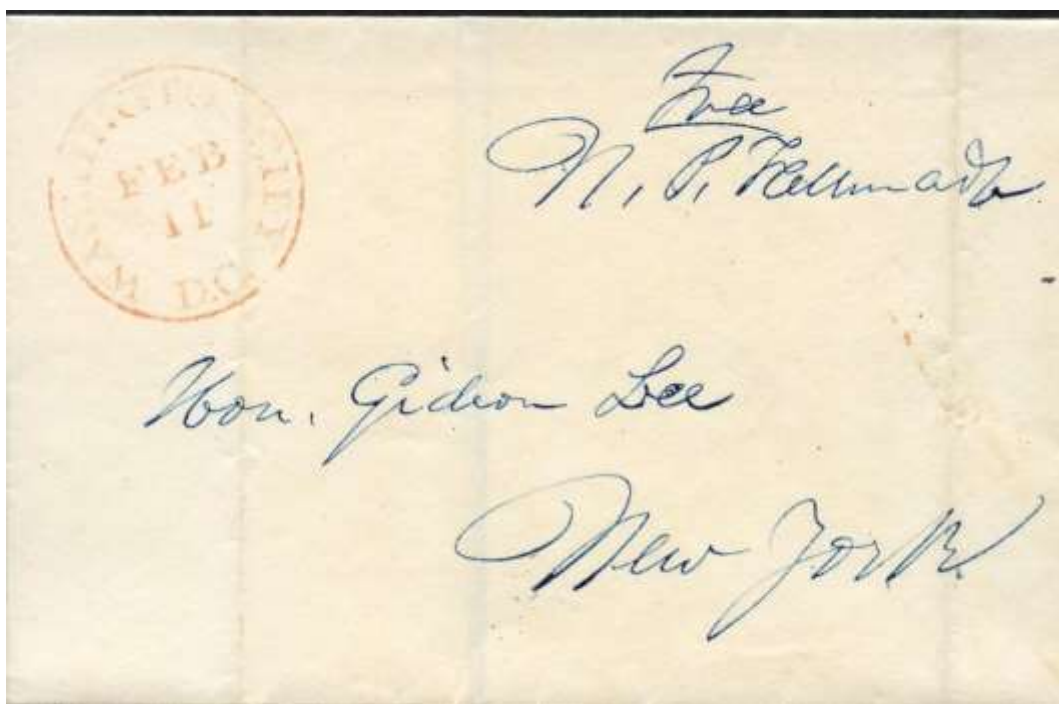 WASHINGTON CITY
FEB
11
D.C.
Free
N. P. Tallmadge
Hon. Gideon Lee
New York.